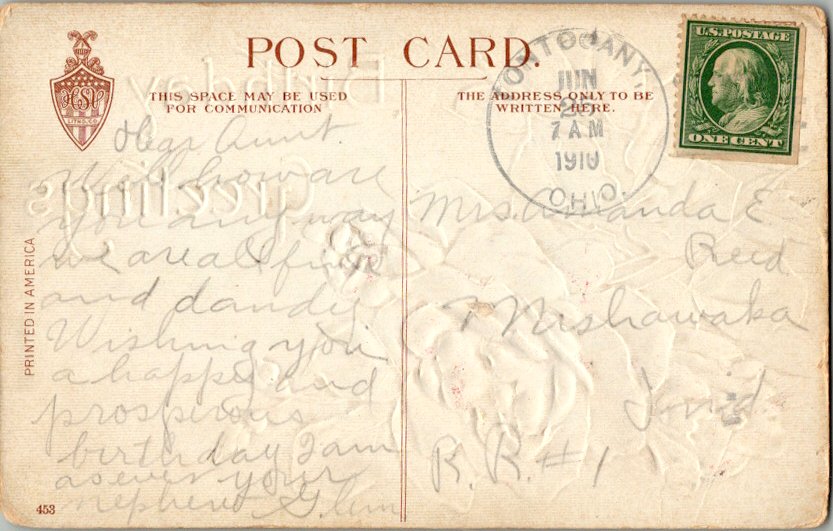 POST CARD.
THIS SPACE MAY BE USED
FOR COMMUNICATION
THE ADDRESS ONLY TO BE
WRITTEN HERE.
HSV
LITHO. CO.
TONTOGANY,
JUN
7 AM
1910
OHIO.
U.S. POSTAGE
ONE CENT
Birthday
Greetings
Dear Aunt
Well how are
you anyway
we are all fine
and dandy
Wishing you
a happy and
prosperous
birthday I am
as ever your
nephew Glenn
Mrs. Amanda E
Reed
Mishawaka
Ind
R. R. #1
PRINTED IN AMERICA
453